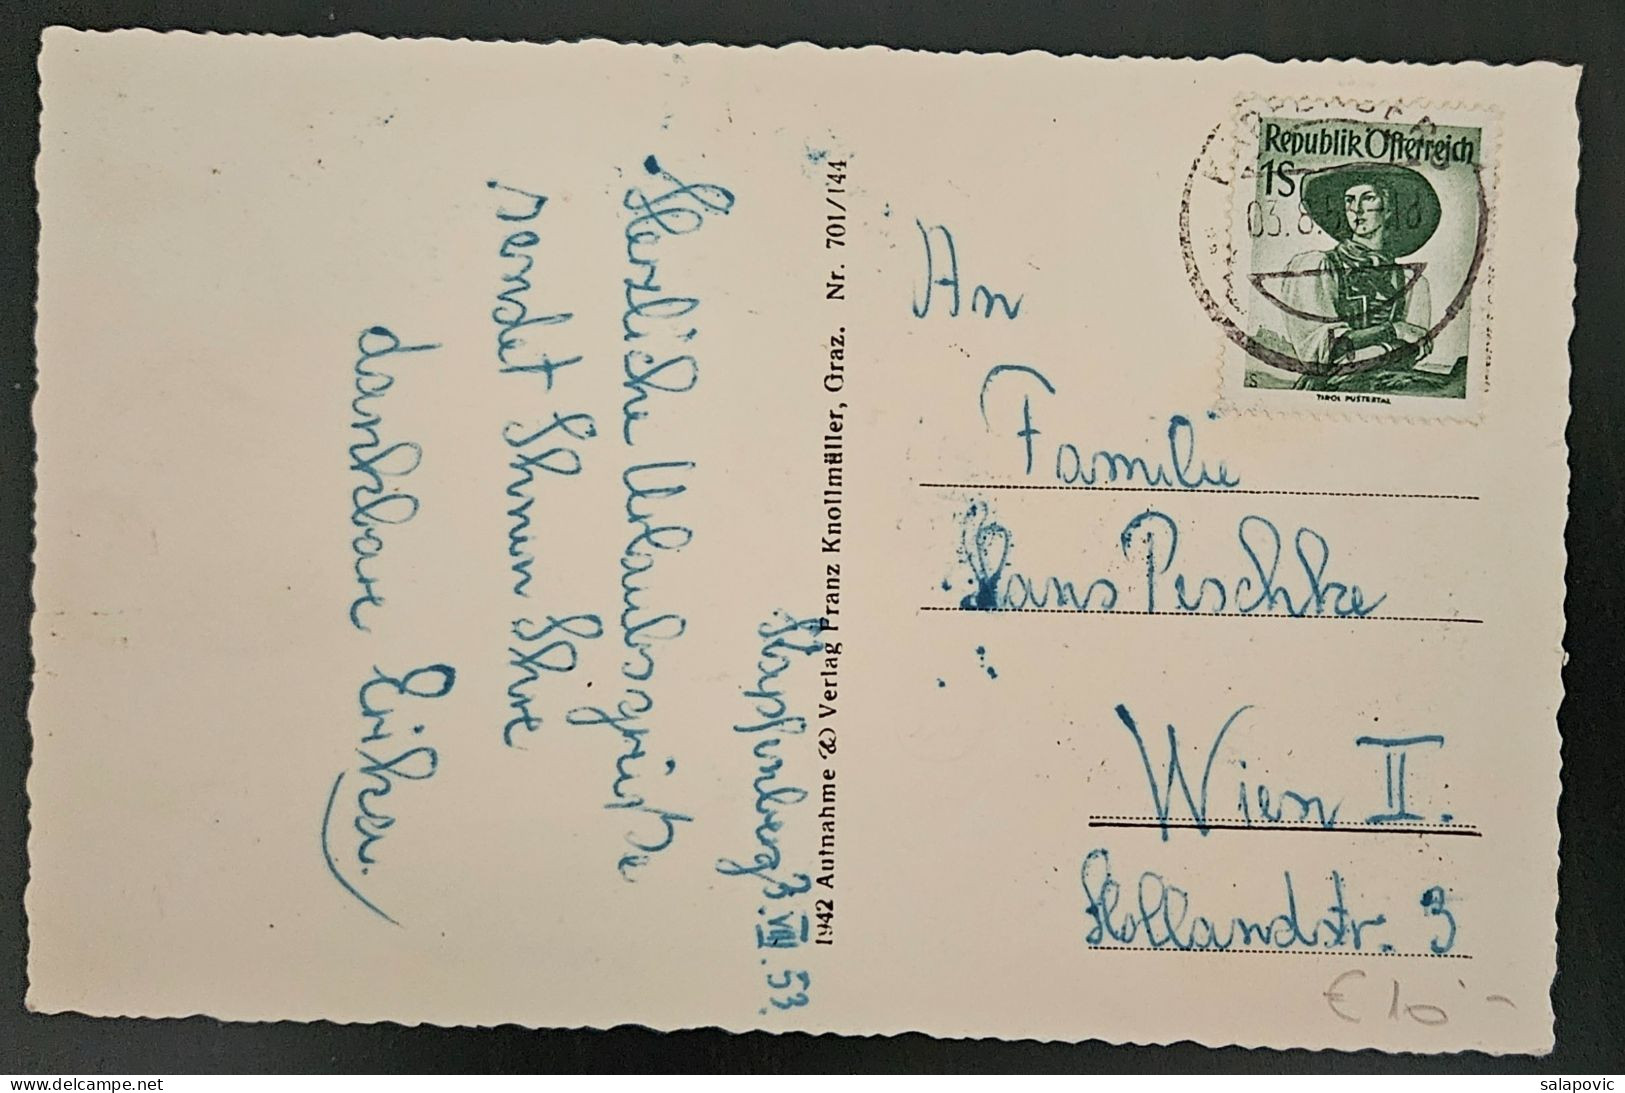 Kapfenberg 3.VIII.53.
Herzliche Urlaubsgrüße
sendet Ihnen Ihre
dankbare Erika.
1942 Aufnahme & Verlag Franz Knollmüller, Graz. Nr. 701/144
Republik Österreich
1S
03.8.
TIROL PUSTERTAL
An
Familie
Hans Peschke
Wien II.
Hollandstr. 3
€ 10.-
salapovic